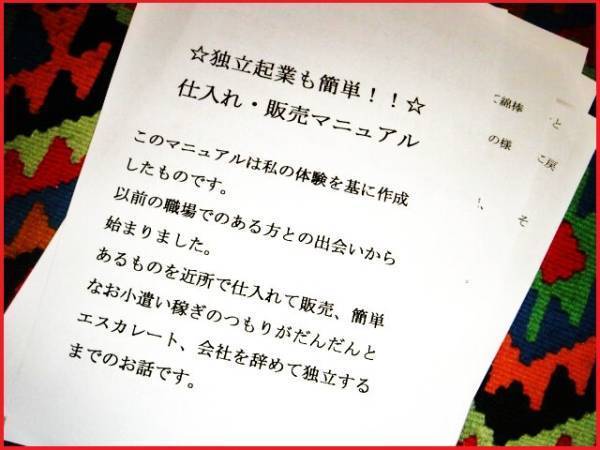 ☆独立起業も簡単！！☆
仕入れ・販売マニュアル
このマニュアルは私の体験を基に作成
したものです。
以前の職場でのある方との出会いから
始まりました。
あるものを近所で仕入れて販売、簡単
なお小遣い稼ぎのつもりがだんだんと
エスカレート、会社を辞めて独立する
までのお話です。
綿棒
と
の様
に戻
そ